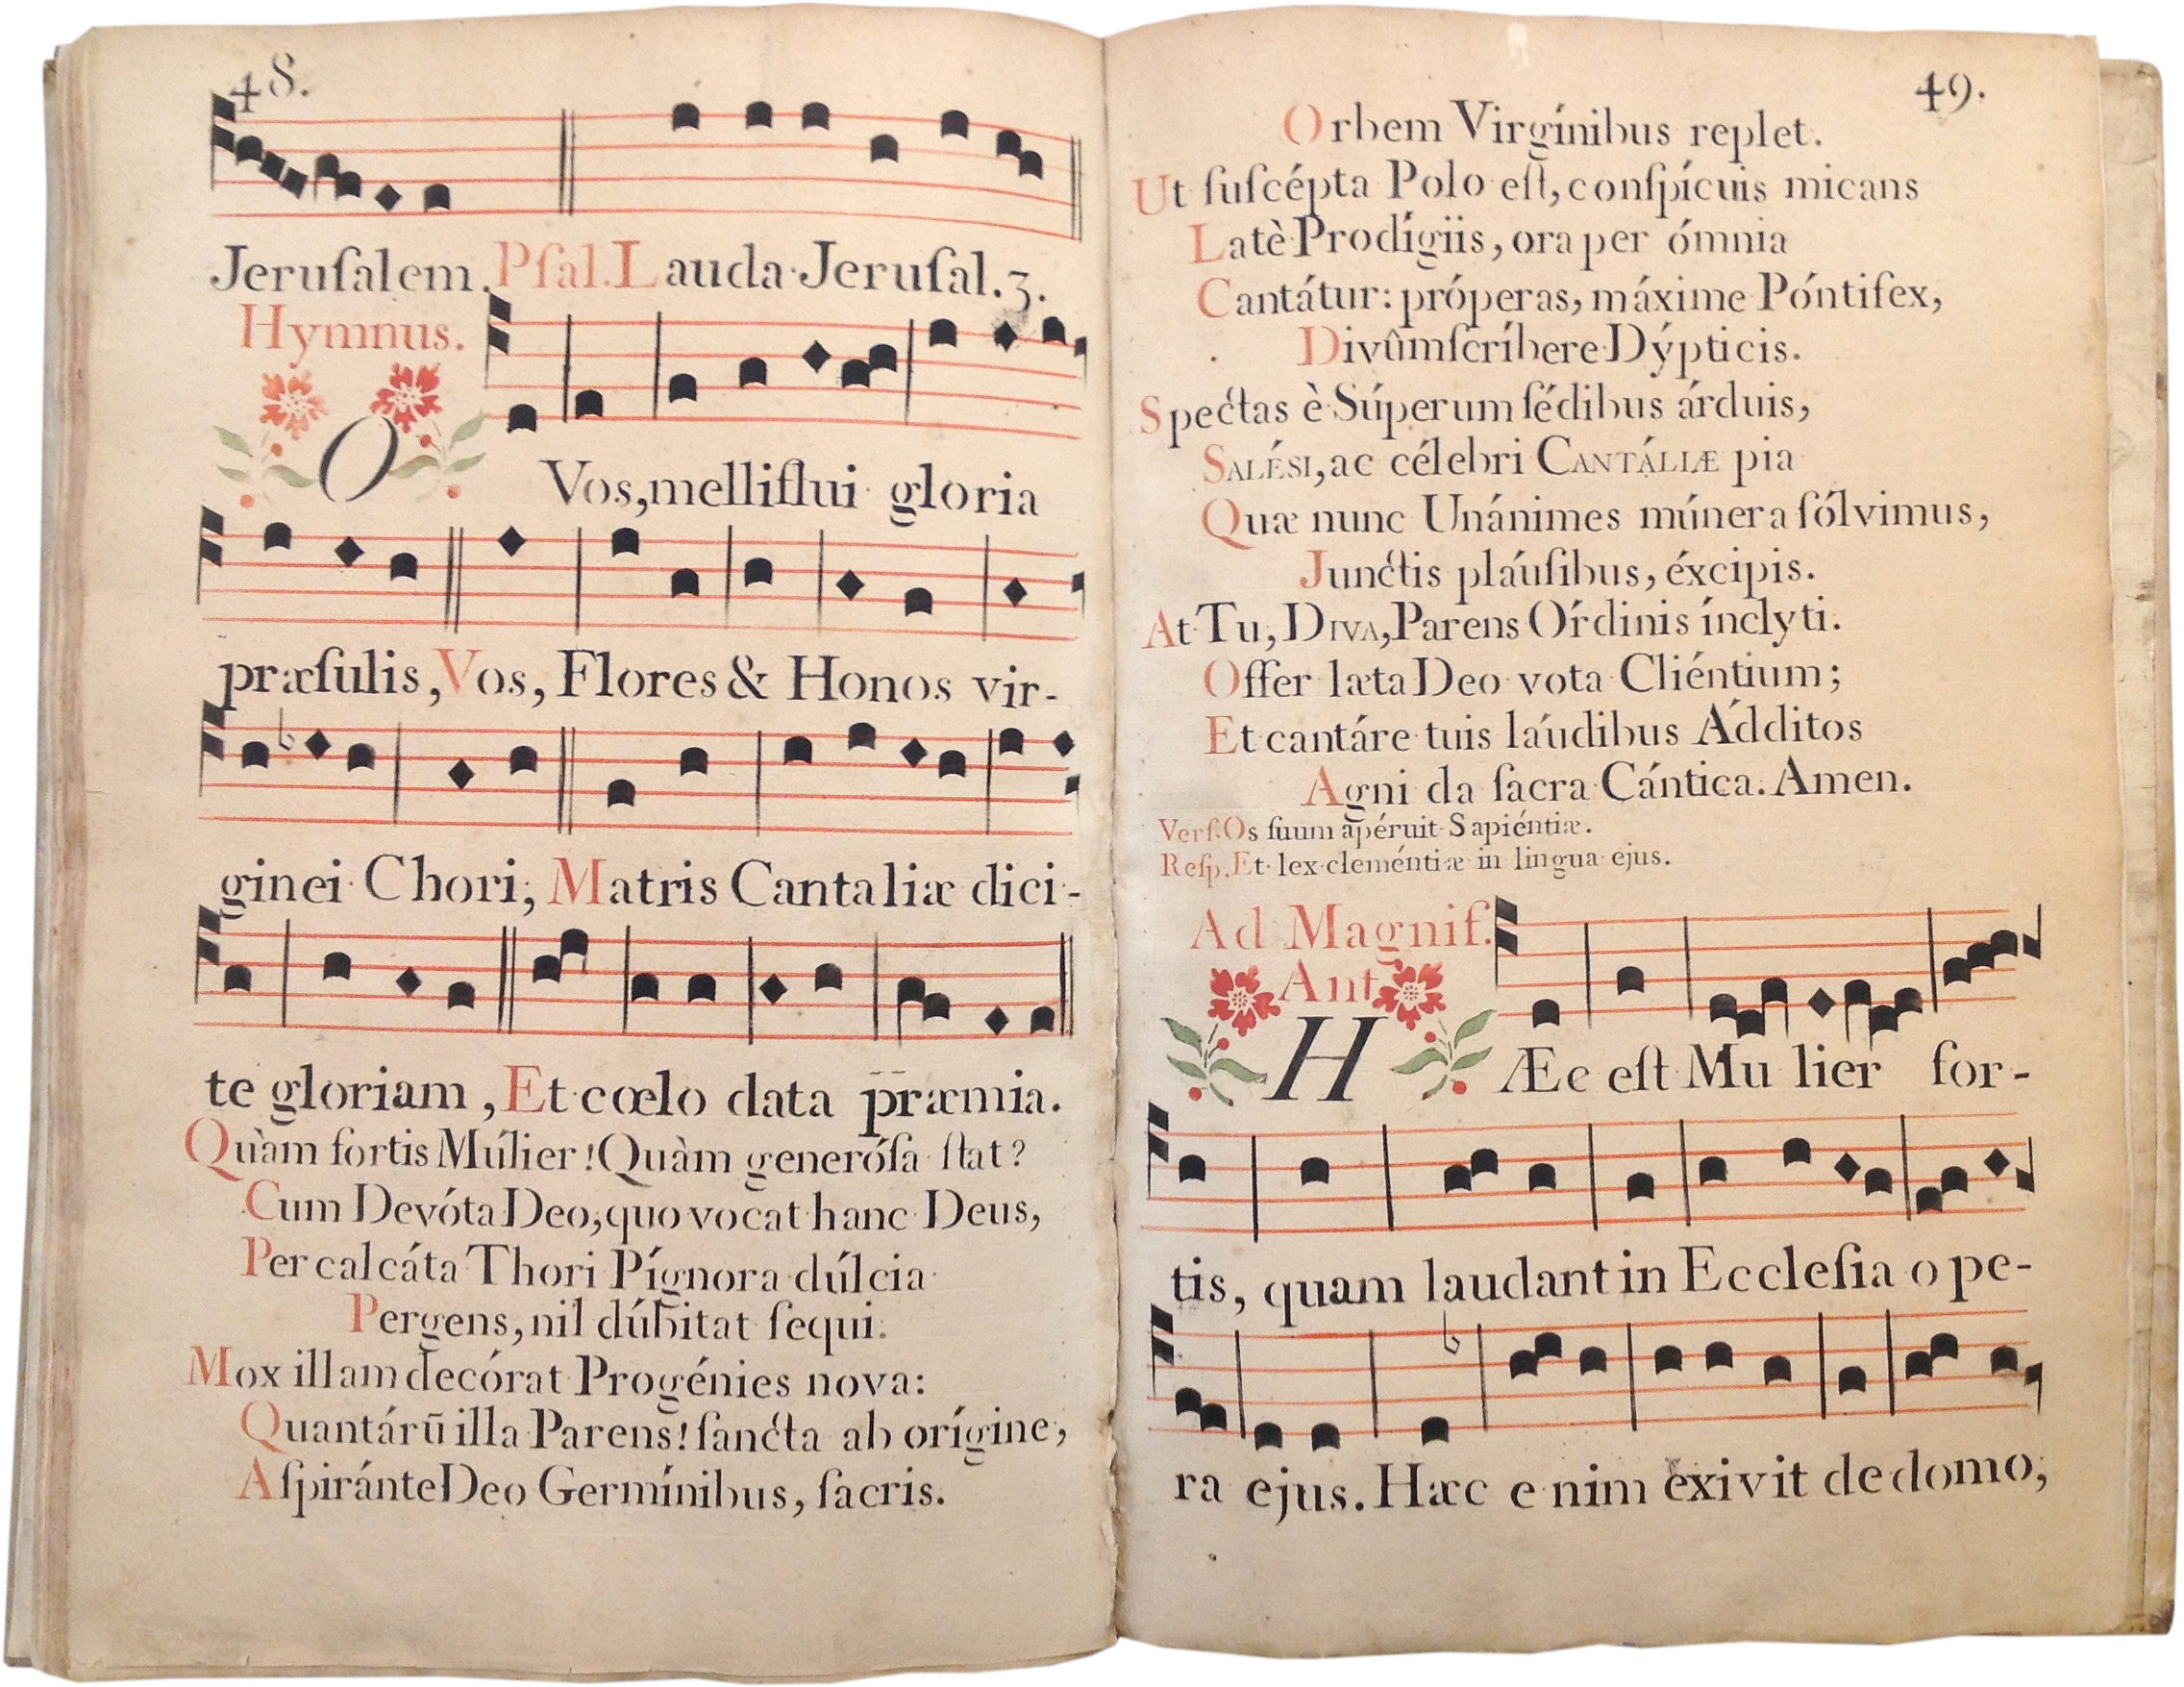 48.
Jeruſalem. Pſal. Lauda Jeruſal. 3.
Hymnus.
O Vos, melliflui gloria
præſulis, Vos, Flores & Honos vir-
ginei Chori; Matris Cantaliæ dici-
te gloriam, Et cœlo data præmia.
Quàm fortis Múlier! Quàm generóſa ſtat?
Cum Devóta Deo, quo vocat hanc Deus,
Per calcáta Thori Pígnora dúlcia
Pergens, nil dúbitat ſequi.
Mox illam decórat Progénies nova:
Quantárū illa Parens! ſancta ab orígine,
Aſpiránte Deo Germínibus, ſacris.
49.
Orbem Virgínibus replet.
Ut ſuſcépta Polo eſt, conſpícuis micans
Latè Prodígiis, ora per ómnia
Cantátur: próperas, máxime Póntifex,
Divûm ſcríbere Dýpticis.
Spectas è Súperum ſédibus árduis,
SALÉSI, ac célebri CANTÁLIÆ pia
Quæ nunc Unánimes múnera ſólvimus,
Junctis pláuſibus, éxcipis.
At Tu, DIVA, Parens Órdinis ínclyti.
Offer læta Deo vota Cliéntium;
Et cantáre tuis láudibus Ádditos
Agni da ſacra Cántica. Amen.
Verſ. Os ſuum apéruit Sapiéntiæ.
Reſp. Et lex cleméntiæ in lingua ejus.
Ad Magnif.
Ant.
HÆc eſt Mu lier for-
tis, quam laudant in Eccleſia ope-
ra ejus. Hæc enim exivit de domo,